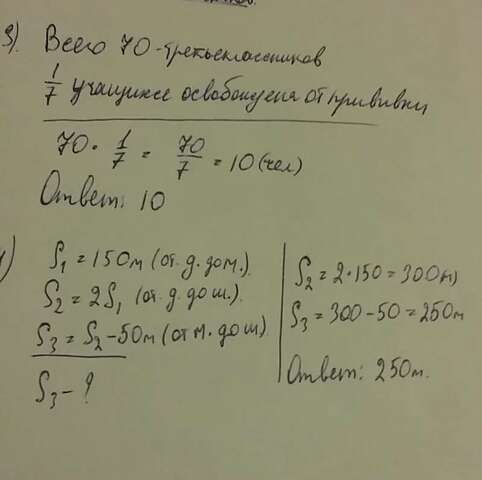 3). Всего 70-третьеклассников
1/7 учащихся освобождена от прививки
70 · 1/7 = 70/7 = 10 (чел)
Ответ: 10
S₁ = 150м (от. д. до м.)
S₂ = 2S₁ (от. д. до ш.)
S₃ = S₂ - 50м (от м. до ш)
S₃ - ?
S₂ = 2·150 = 300(м)
S₃ = 300 - 50 = 250м
Ответ: 250м.